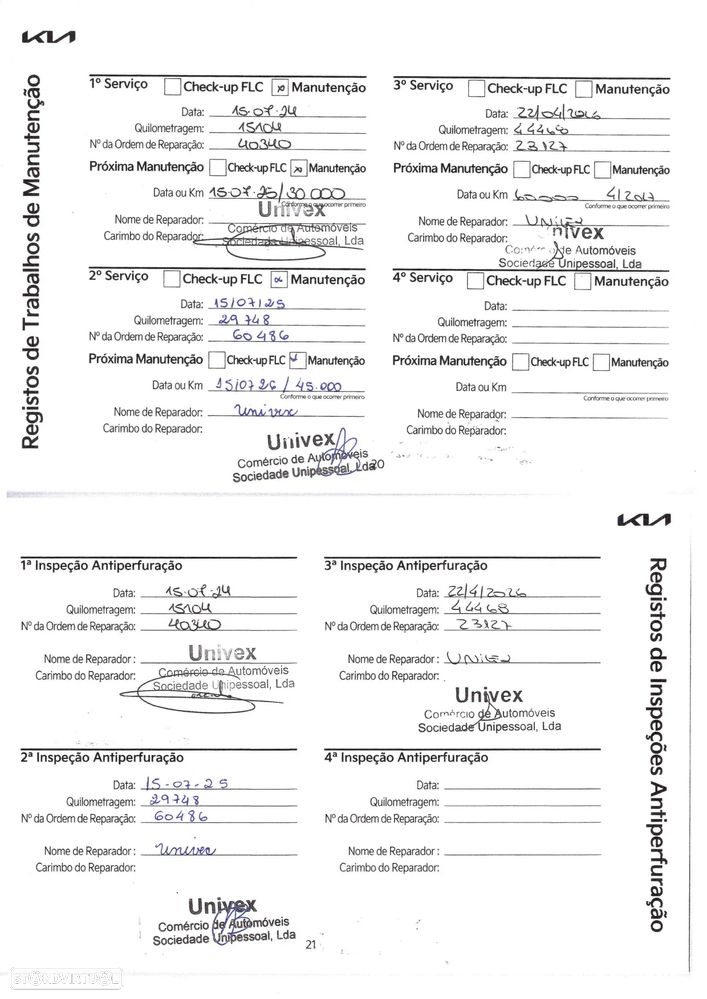 KIA
Registos de Trabalhos de Manutenção
1º Serviço Check-up FLC Manutenção
Data: 15.07.24
Quilometragem: 15104
Nº da Ordem de Reparação: 40340
Próxima Manutenção Check-up FLC Manutenção
Data ou Km 15.07.25/30.000
Conforme o que ocorrer primeiro
Nome de Reparador:
Univex
Carimbo do Reparador:
Comércio de Automóveis
Sociedade Unipessoal, Lda
2º Serviço Check-up FLC Manutenção
Data: 15/07/25
Quilometragem: 29748
Nº da Ordem de Reparação: 60486
Próxima Manutenção Check-up FLC Manutenção
Data ou Km 15/07/26 / 45.000
Conforme o que ocorrer primeiro
Nome de Reparador: Univex
Carimbo do Reparador:
Univex
Comércio de Automóveis
Sociedade Unipessoal, Lda
20
3º Serviço Check-up FLC Manutenção
Data: 22/04/2026
Quilometragem: 44468
Nº da Ordem de Reparação: 23127
Próxima Manutenção Check-up FLC Manutenção
Data ou Km 60000 4/2027
Conforme o que ocorrer primeiro
Nome de Reparador: UNIVEX
Carimbo do Reparador:
nivex
Comércio de Automóveis
Sociedade Unipessoal, Lda
4º Serviço Check-up FLC Manutenção
Data:
Quilometragem:
Nº da Ordem de Reparação:
Próxima Manutenção Check-up FLC Manutenção
Data ou Km
Conforme o que ocorrer primeiro
Nome de Reparador:
Carimbo do Reparador:
KIA
Registos de Inspeções Antiperfuração
1ª Inspeção Antiperfuração
Data: 15.07.24
Quilometragem: 15104
Nº da Ordem de Reparação: 40340
Nome de Reparador :
Univex
Carimbo do Reparador:
Comércio de Automóveis
Sociedade Unipessoal, Lda
2ª Inspeção Antiperfuração
Data: 15-07-25
Quilometragem: 29748
Nº da Ordem de Reparação: 60486
Nome de Reparador : Univex
Carimbo do Reparador:
Univex
Comércio de Automóveis
Sociedade Unipessoal, Lda
21
3ª Inspeção Antiperfuração
Data: 22/4/2026
Quilometragem: 44468
Nº da Ordem de Reparação: 23127
Nome de Reparador : UNIVEX
Carimbo do Reparador:
Univex
Comércio de Automóveis
Sociedade Unipessoal, Lda
4ª Inspeção Antiperfuração
Data:
Quilometragem:
Nº da Ordem de Reparação:
Nome de Reparador :
Carimbo do Reparador:
STANDVIRTUAL